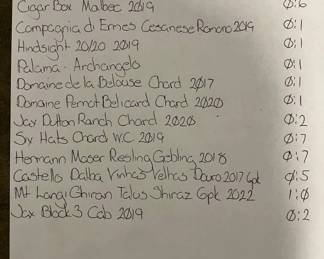 Cigar Box Malbec 2019 Ø:6
Compagnia di Ermes Cesanese Romano 2019 Ø:1
Hindsight 20/20 2019 Ø:1
Palama - Archangelo Ø:1
Domaine de la Belouse Chard 2017 Ø:1
Domaine Pernot Belicard Chard 2020 Ø:1
Jax Dutton Ranch Chard 2020 Ø:2
Six Hats Chard W.C. 2019 Ø:7
Hermann Moser Riesling Gebling 2018 Ø:7
Castello Dalba Vinhas Velhas Douro 2017 6pk Ø:5
Mt Langi Ghiran Talus Shiraz 6pk 2022 1:Ø
Jax Block 3 Cab 2019 Ø:2